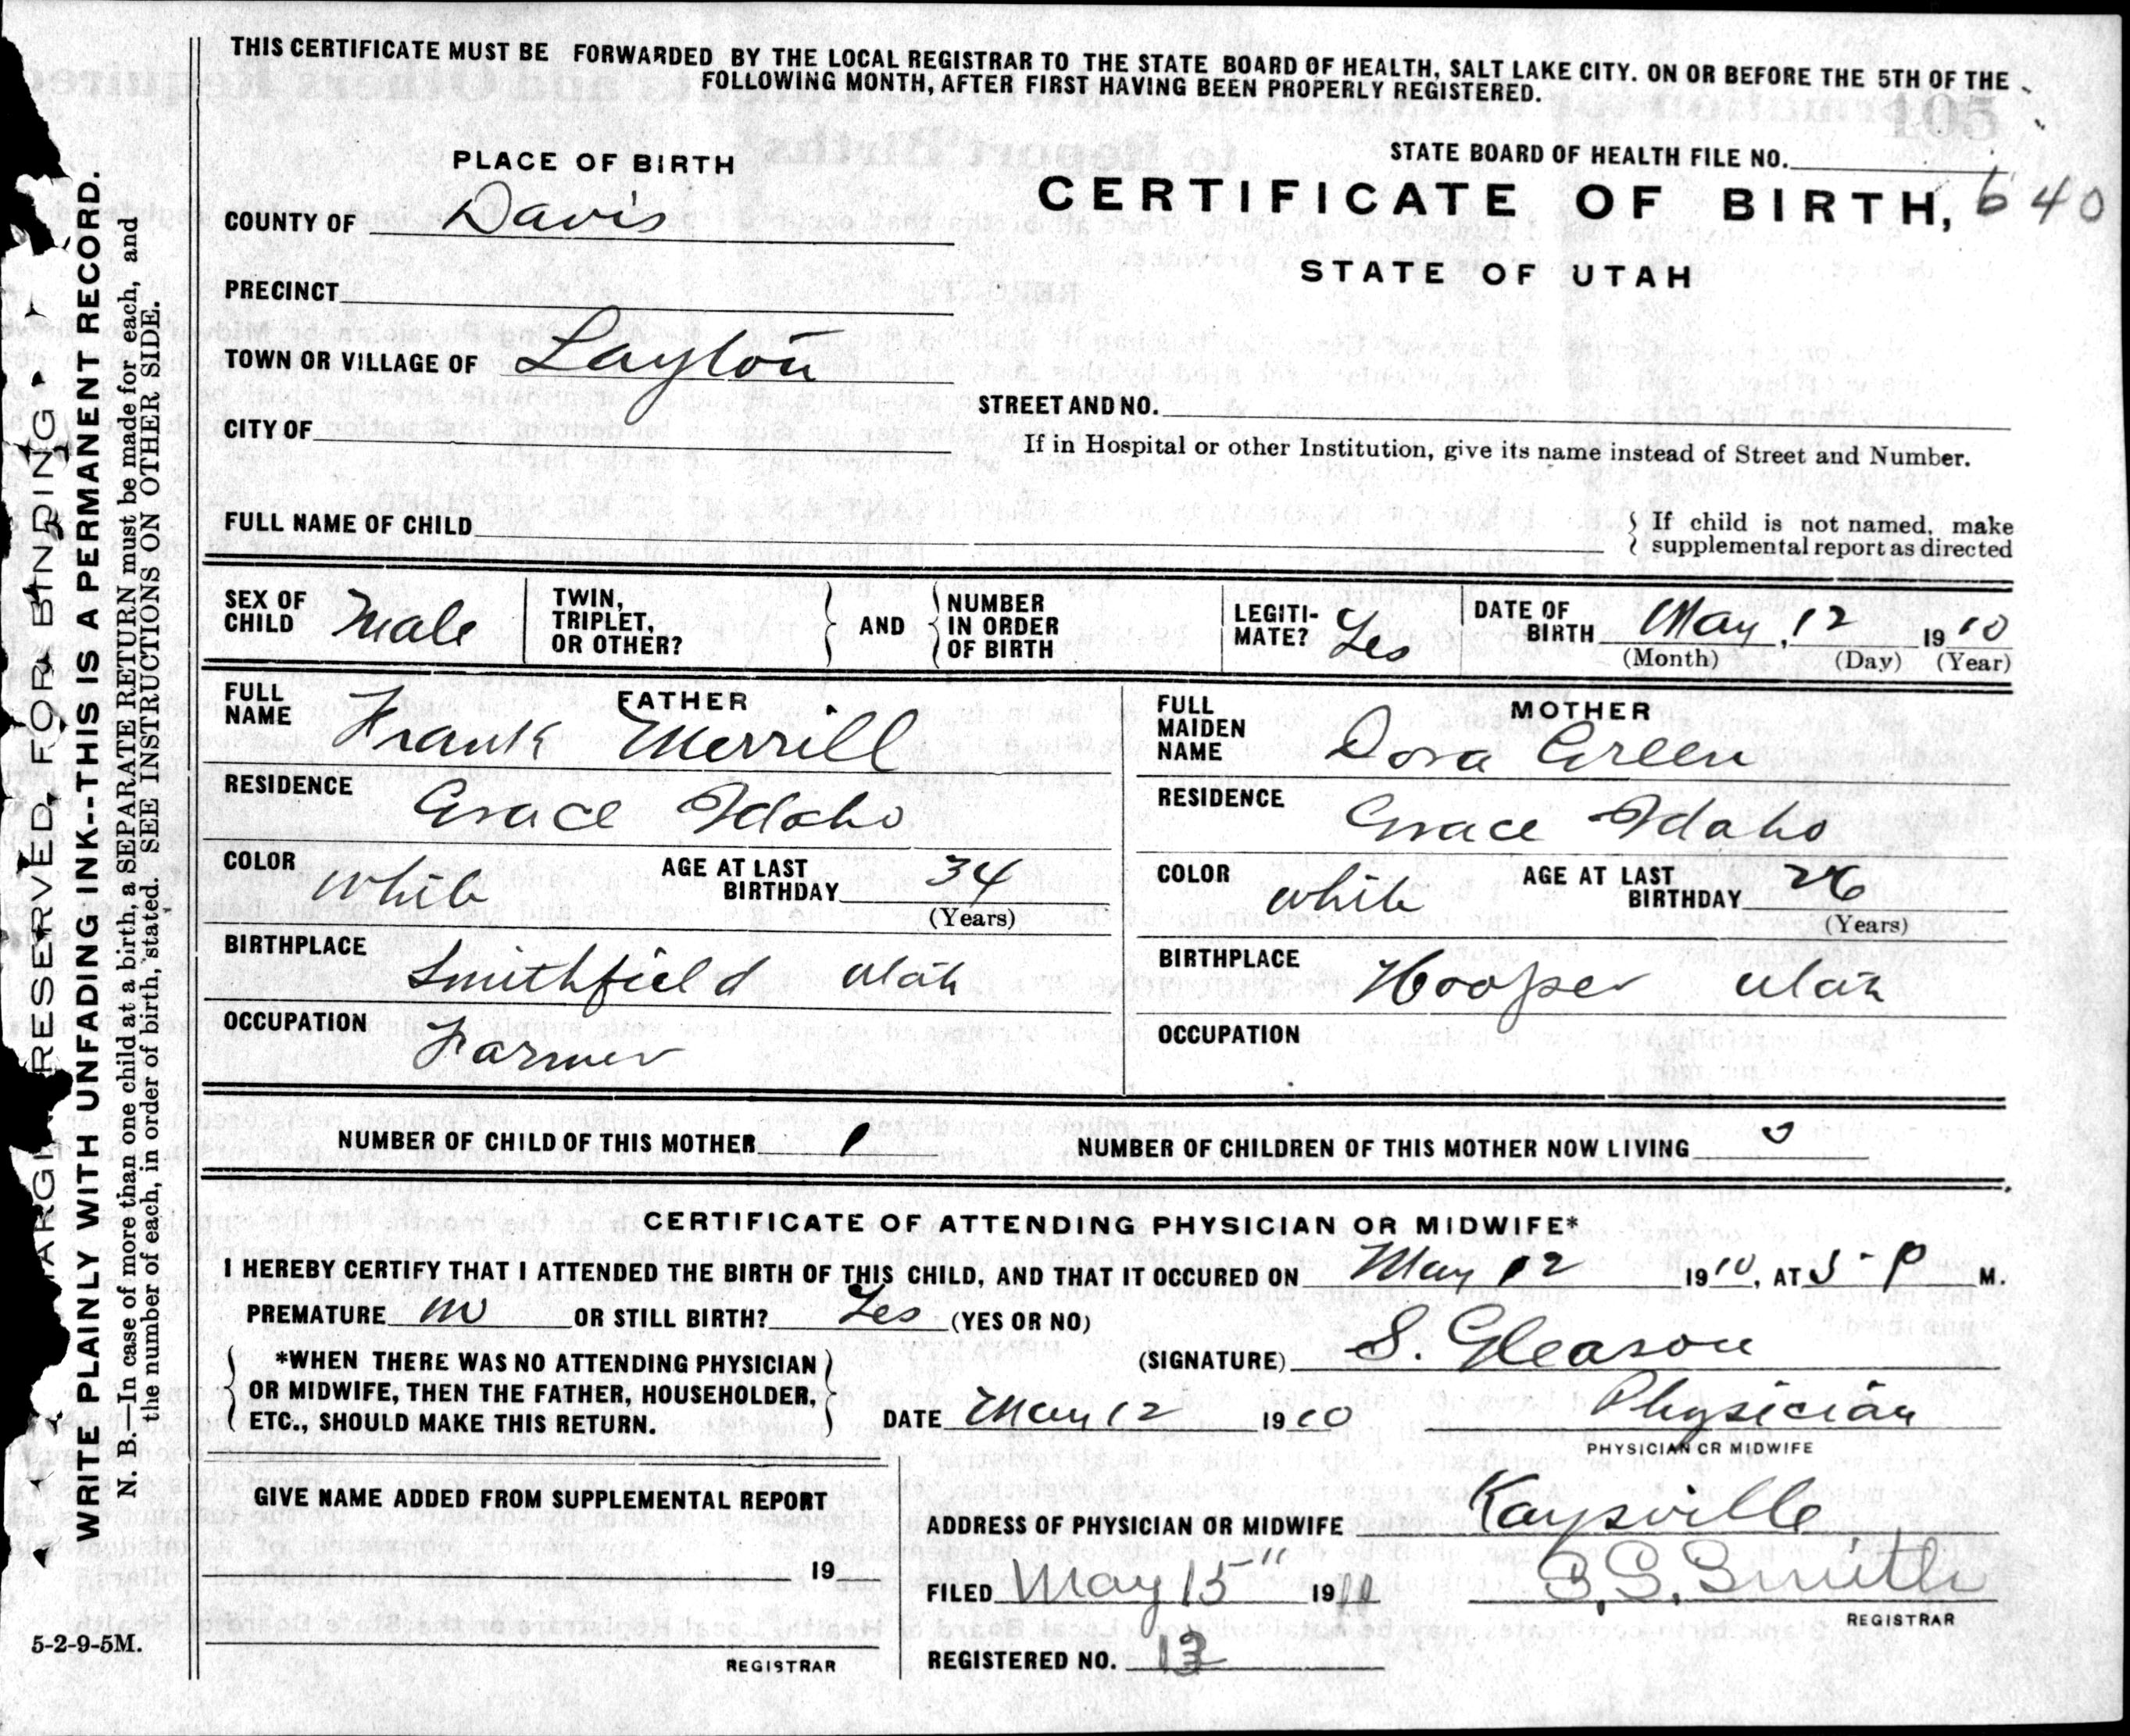 THIS CERTIFICATE MUST BE FORWARDED BY THE LOCAL REGISTRAR TO THE STATE BOARD OF HEALTH, SALT LAKE CITY. ON OR BEFORE THE 5TH OF THE
FOLLOWING MONTH, AFTER FIRST HAVING BEEN PROPERLY REGISTERED.
105
PLACE OF BIRTH
STATE BOARD OF HEALTH FILE NO.
COUNTY OF Davis
CERTIFICATE OF BIRTH, 640
STATE OF UTAH
PRECINCT
TOWN OR VILLAGE OF Layton
STREET AND NO.
CITY OF
If in Hospital or other Institution, give its name instead of Street and Number.
FULL NAME OF CHILD
If child is not named, make
supplemental report as directed
SEX OF CHILD Male
TWIN, TRIPLET, OR OTHER?
AND
NUMBER IN ORDER OF BIRTH
LEGITI-MATE? Yes
DATE OF BIRTH May, 12 1910
(Month) (Day) (Year)
FATHER
FULL NAME Frank Merrill
MOTHER
FULL MAIDEN NAME Dora Green
RESIDENCE Grace Idaho
RESIDENCE Grace Idaho
COLOR White AGE AT LAST BIRTHDAY 34
(Years)
COLOR White AGE AT LAST BIRTHDAY 26
(Years)
BIRTHPLACE Smithfield Utah
BIRTHPLACE Hooper Utah
OCCUPATION Farmer
OCCUPATION
NUMBER OF CHILD OF THIS MOTHER 1
NUMBER OF CHILDREN OF THIS MOTHER NOW LIVING 0
CERTIFICATE OF ATTENDING PHYSICIAN OR MIDWIFE*
I HEREBY CERTIFY THAT I ATTENDED THE BIRTH OF THIS CHILD, AND THAT IT OCCURED ON May 12 1910, AT 5- P M.
PREMATURE no OR STILL BIRTH? Yes (YES OR NO)
*WHEN THERE WAS NO ATTENDING PHYSICIAN
OR MIDWIFE, THEN THE FATHER, HOUSEHOLDER,
ETC., SHOULD MAKE THIS RETURN.
(SIGNATURE) S. Gleason
DATE May 12 1910
Physician
PHYSICIAN OR MIDWIFE
GIVE NAME ADDED FROM SUPPLEMENTAL REPORT
19
REGISTRAR
ADDRESS OF PHYSICIAN OR MIDWIFE Kaysville
FILED May 15" 1910
REGISTRAR
REGISTERED NO. 13
5-2-9-5M.
MARGIN RESERVED FOR BINDING
WRITE PLAINLY WITH UNFADING INK--THIS IS A PERMANENT RECORD.
N. B.—In case of more than one child at a birth, a SEPARATE RETURN must be made for each, and
the number of each, in order of birth, stated. SEE INSTRUCTIONS ON OTHER SIDE.